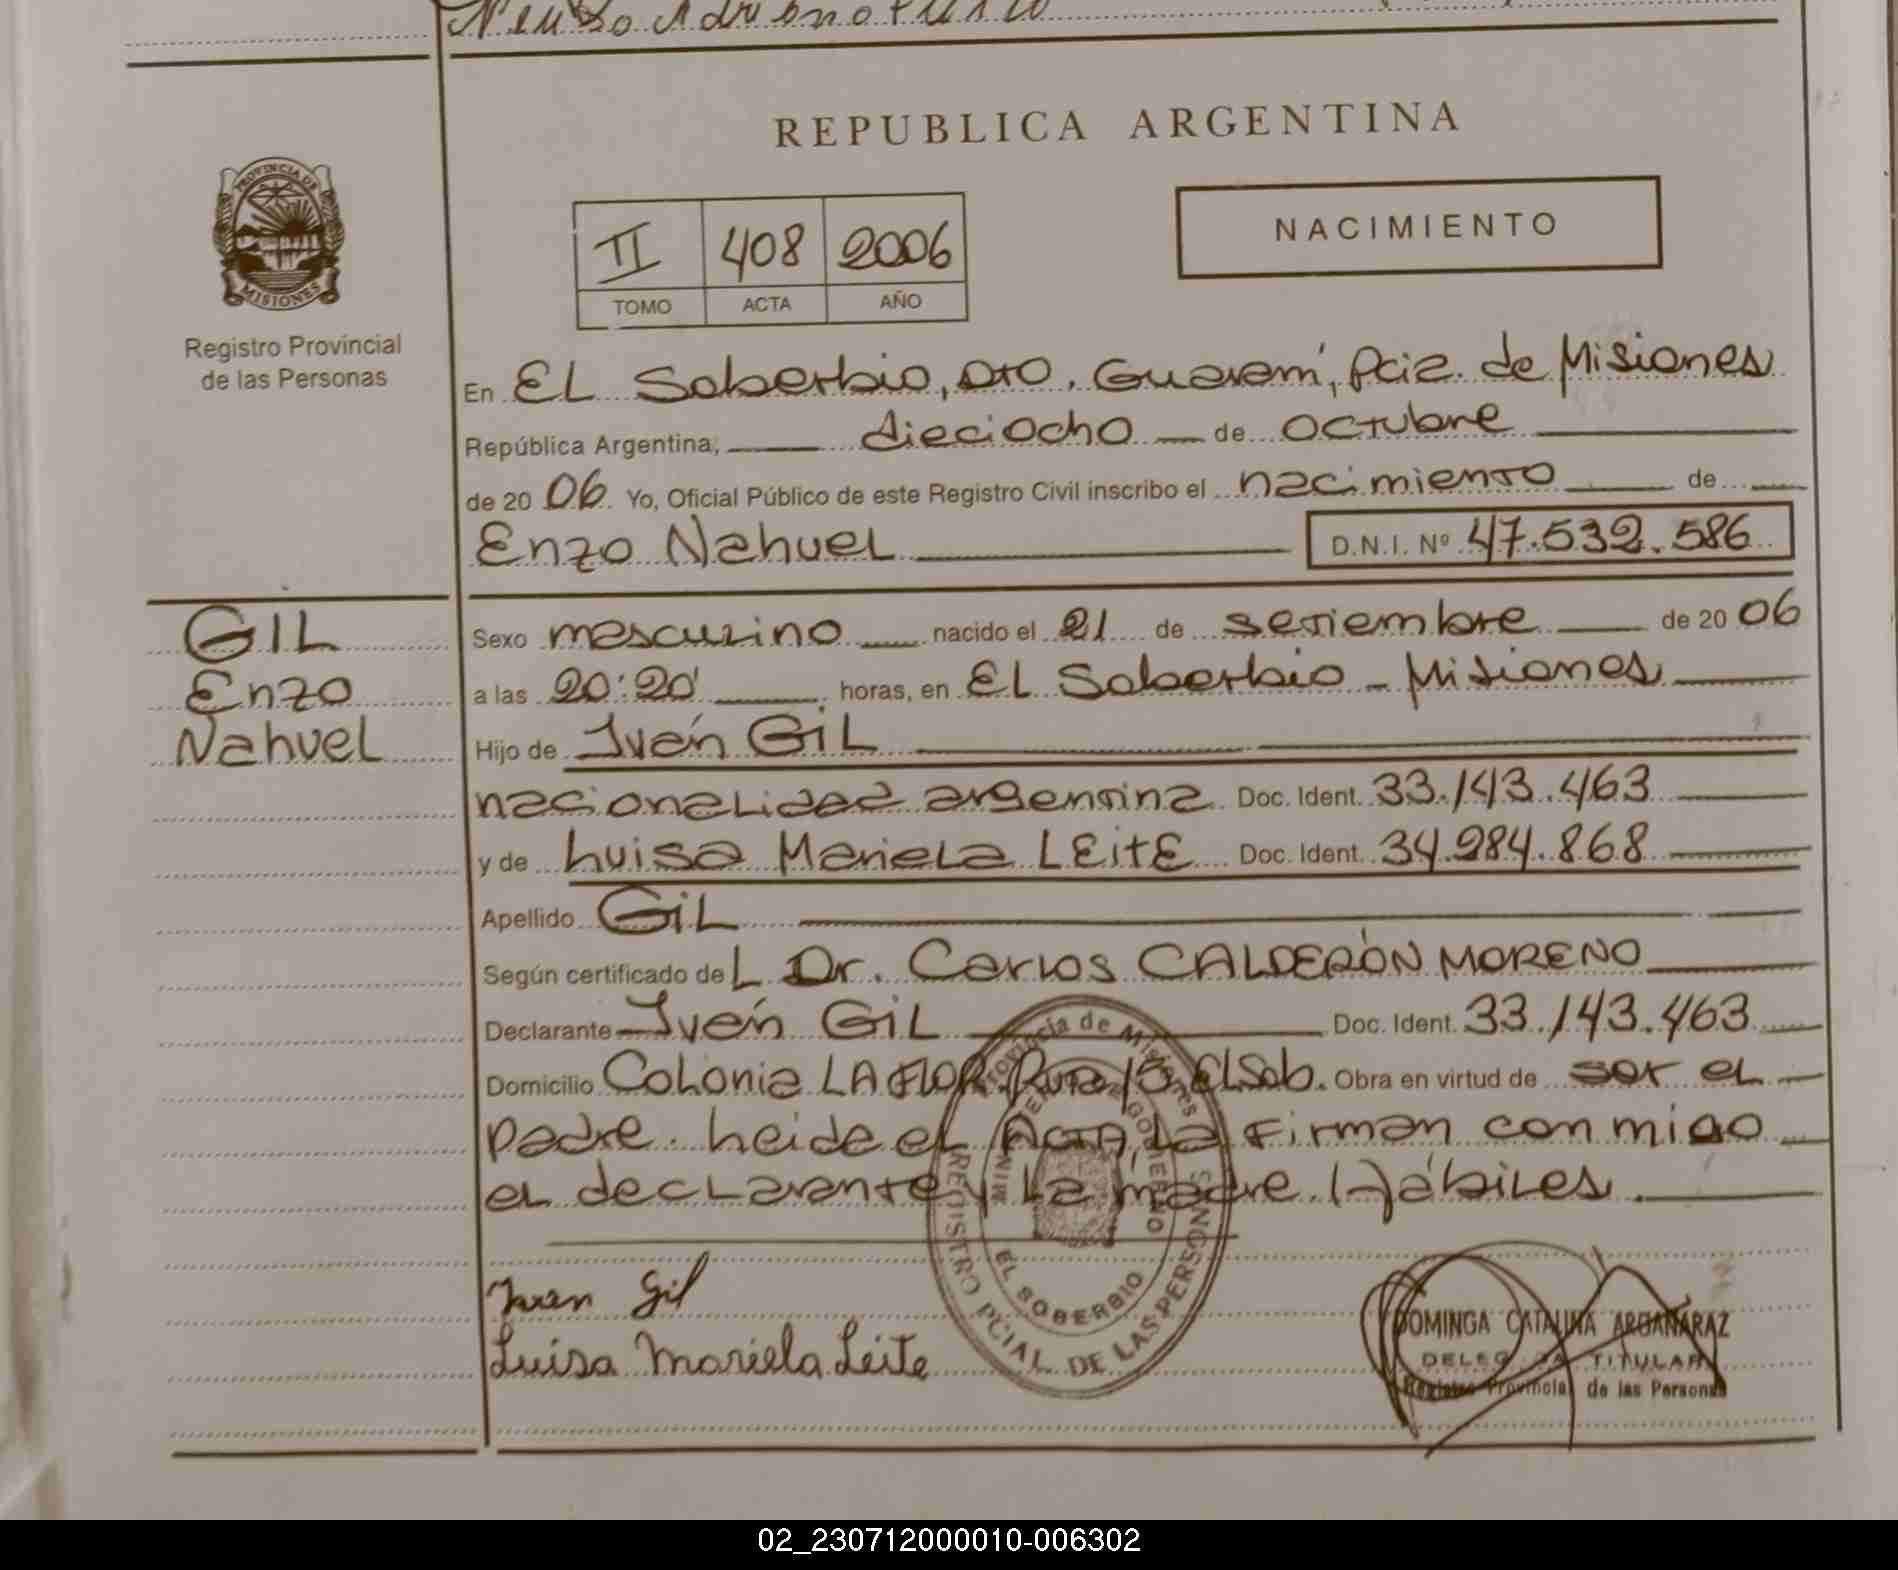 REPUBLICA ARGENTINA
PROVINCIA DE
MISIONES
Registro Provincial
de las Personas
II 408 2006
TOMO ACTA AÑO
NACIMIENTO
En EL Soberbio, Dto. Guaraní, Pcia. de Misiones
República Argentina, dieciocho de octubre
de 2006 Yo, Oficial Público de este Registro Civil inscribo el nacimiento de
Enzo Nahuel D.N.I. Nº 47.532.586
GIL
Enzo
Nahuel
Sexo masculino nacido el 21 de setiembre de 2006
a las 20:20' horas, en EL Soberbio - Misiones
Hijo de Iván GIL
nacionalidad argentina Doc. Ident. 33.143.463
y de Luisa Mariela LEITE Doc. Ident. 34.984.868
Apellido GIL
Según certificado deL Dr. Carlos CALDERÓN MORENO
Declarante Iván GIL Doc. Ident. 33.143.463
Domicilio Colonia LA FLOR, Ruta 13 El Sob. Obra en virtud de ser el
padre. Leida el Acta, La Firman conmigo
el declarante y La madre. Hábiles.
Provincia de Misiones
MINISTERIO DE GOBIERNO
REGISTRO PCIAL DE LAS PERSONAS
EL SOBERBIO
Ivan Gil
Luisa Mariela Leite
DOMINGA CATALINA ARGAÑARAZ
DELEGADA TITULAR
Registro Provincial de las Personas
02_230712000010-006302